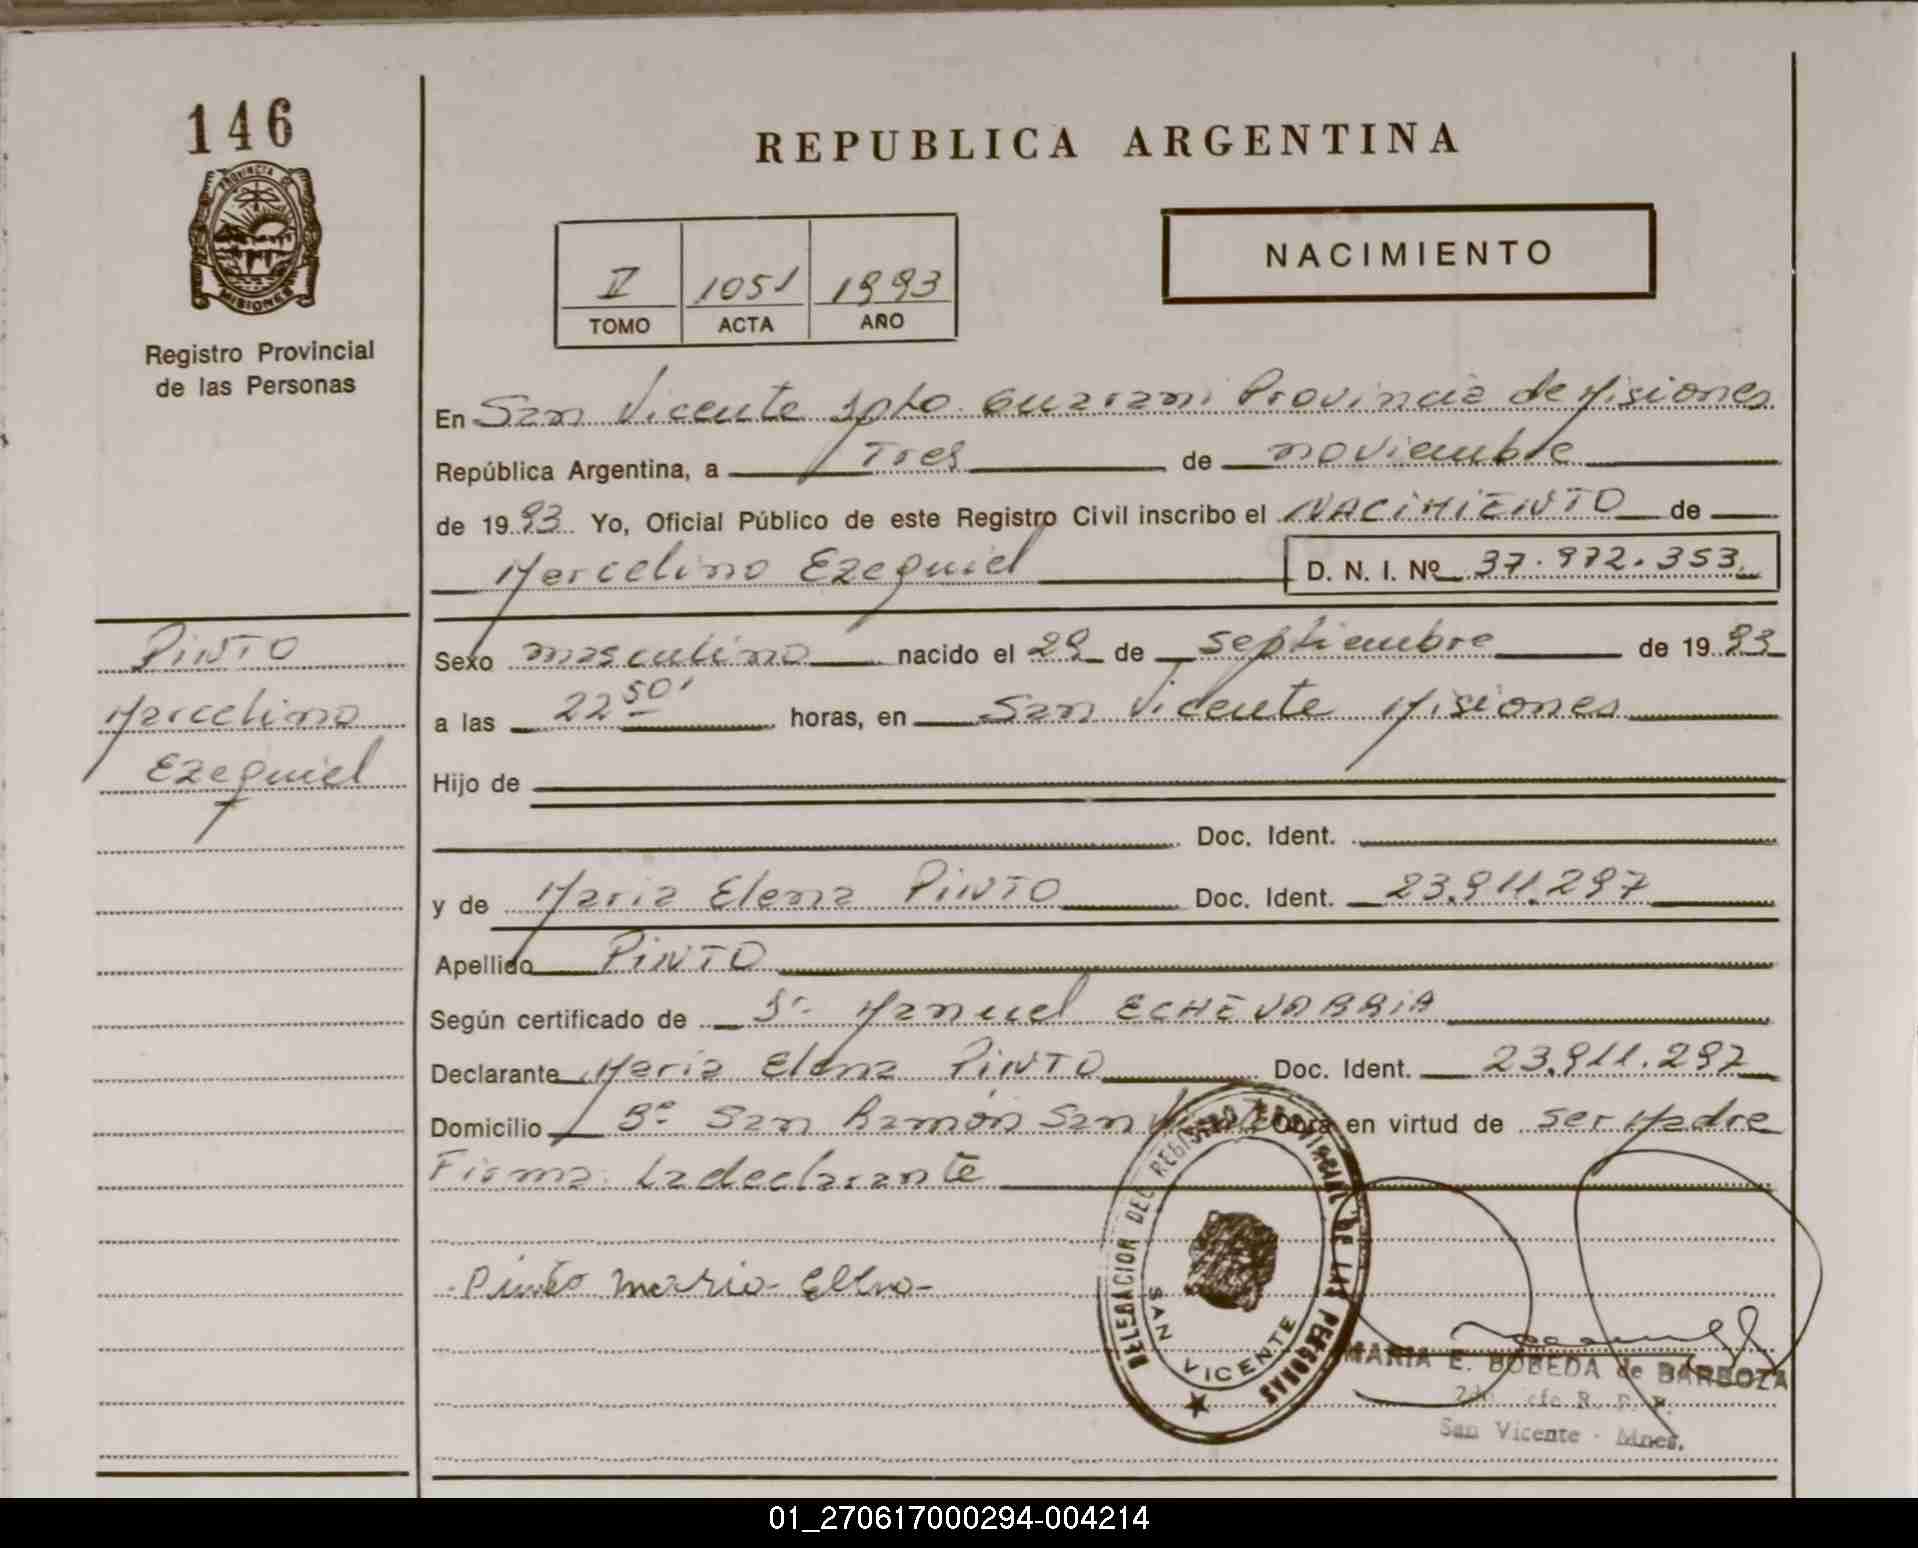 146
PROVINCIA DE
MISIONES
Registro Provincial
de las Personas
REPUBLICA ARGENTINA
NACIMIENTO
V 1051 1993
TOMO ACTA AÑO
En San Vicente Dpto. Guarani Provincia de Misiones
República Argentina, a Tres de noviembre
de 1993 Yo, Oficial Público de este Registro Civil inscribo el NACIMIENTO de
Marcelino Ezequiel D. N. I. Nº 37.972.353
PINTO
Marcelino
Ezequiel
Sexo masculino nacido el 29 de septiembre de 1993
a las 22 50' horas, en San Vicente Misiones
Hijo de
Doc. Ident.
y de Maria Elena PINTO Doc. Ident. 23.911.297
Apellido PINTO
Según certificado de Dr. Manuel ECHEVARRIA
Declarante Maria Elena PINTO Doc. Ident. 23.911.297
Domicilio Bº San Ramón San Vicente Obra en virtud de ser Madre
Firma: La declarante
Pinto Maria Elena
DELEGACION DEL REGISTRO PROVINCIAL DE LAS PERSONAS
SAN VICENTE
MARIA E. BOBEDA de BARBOZA
San Vicente - Mnes.
01_270617000294-004214